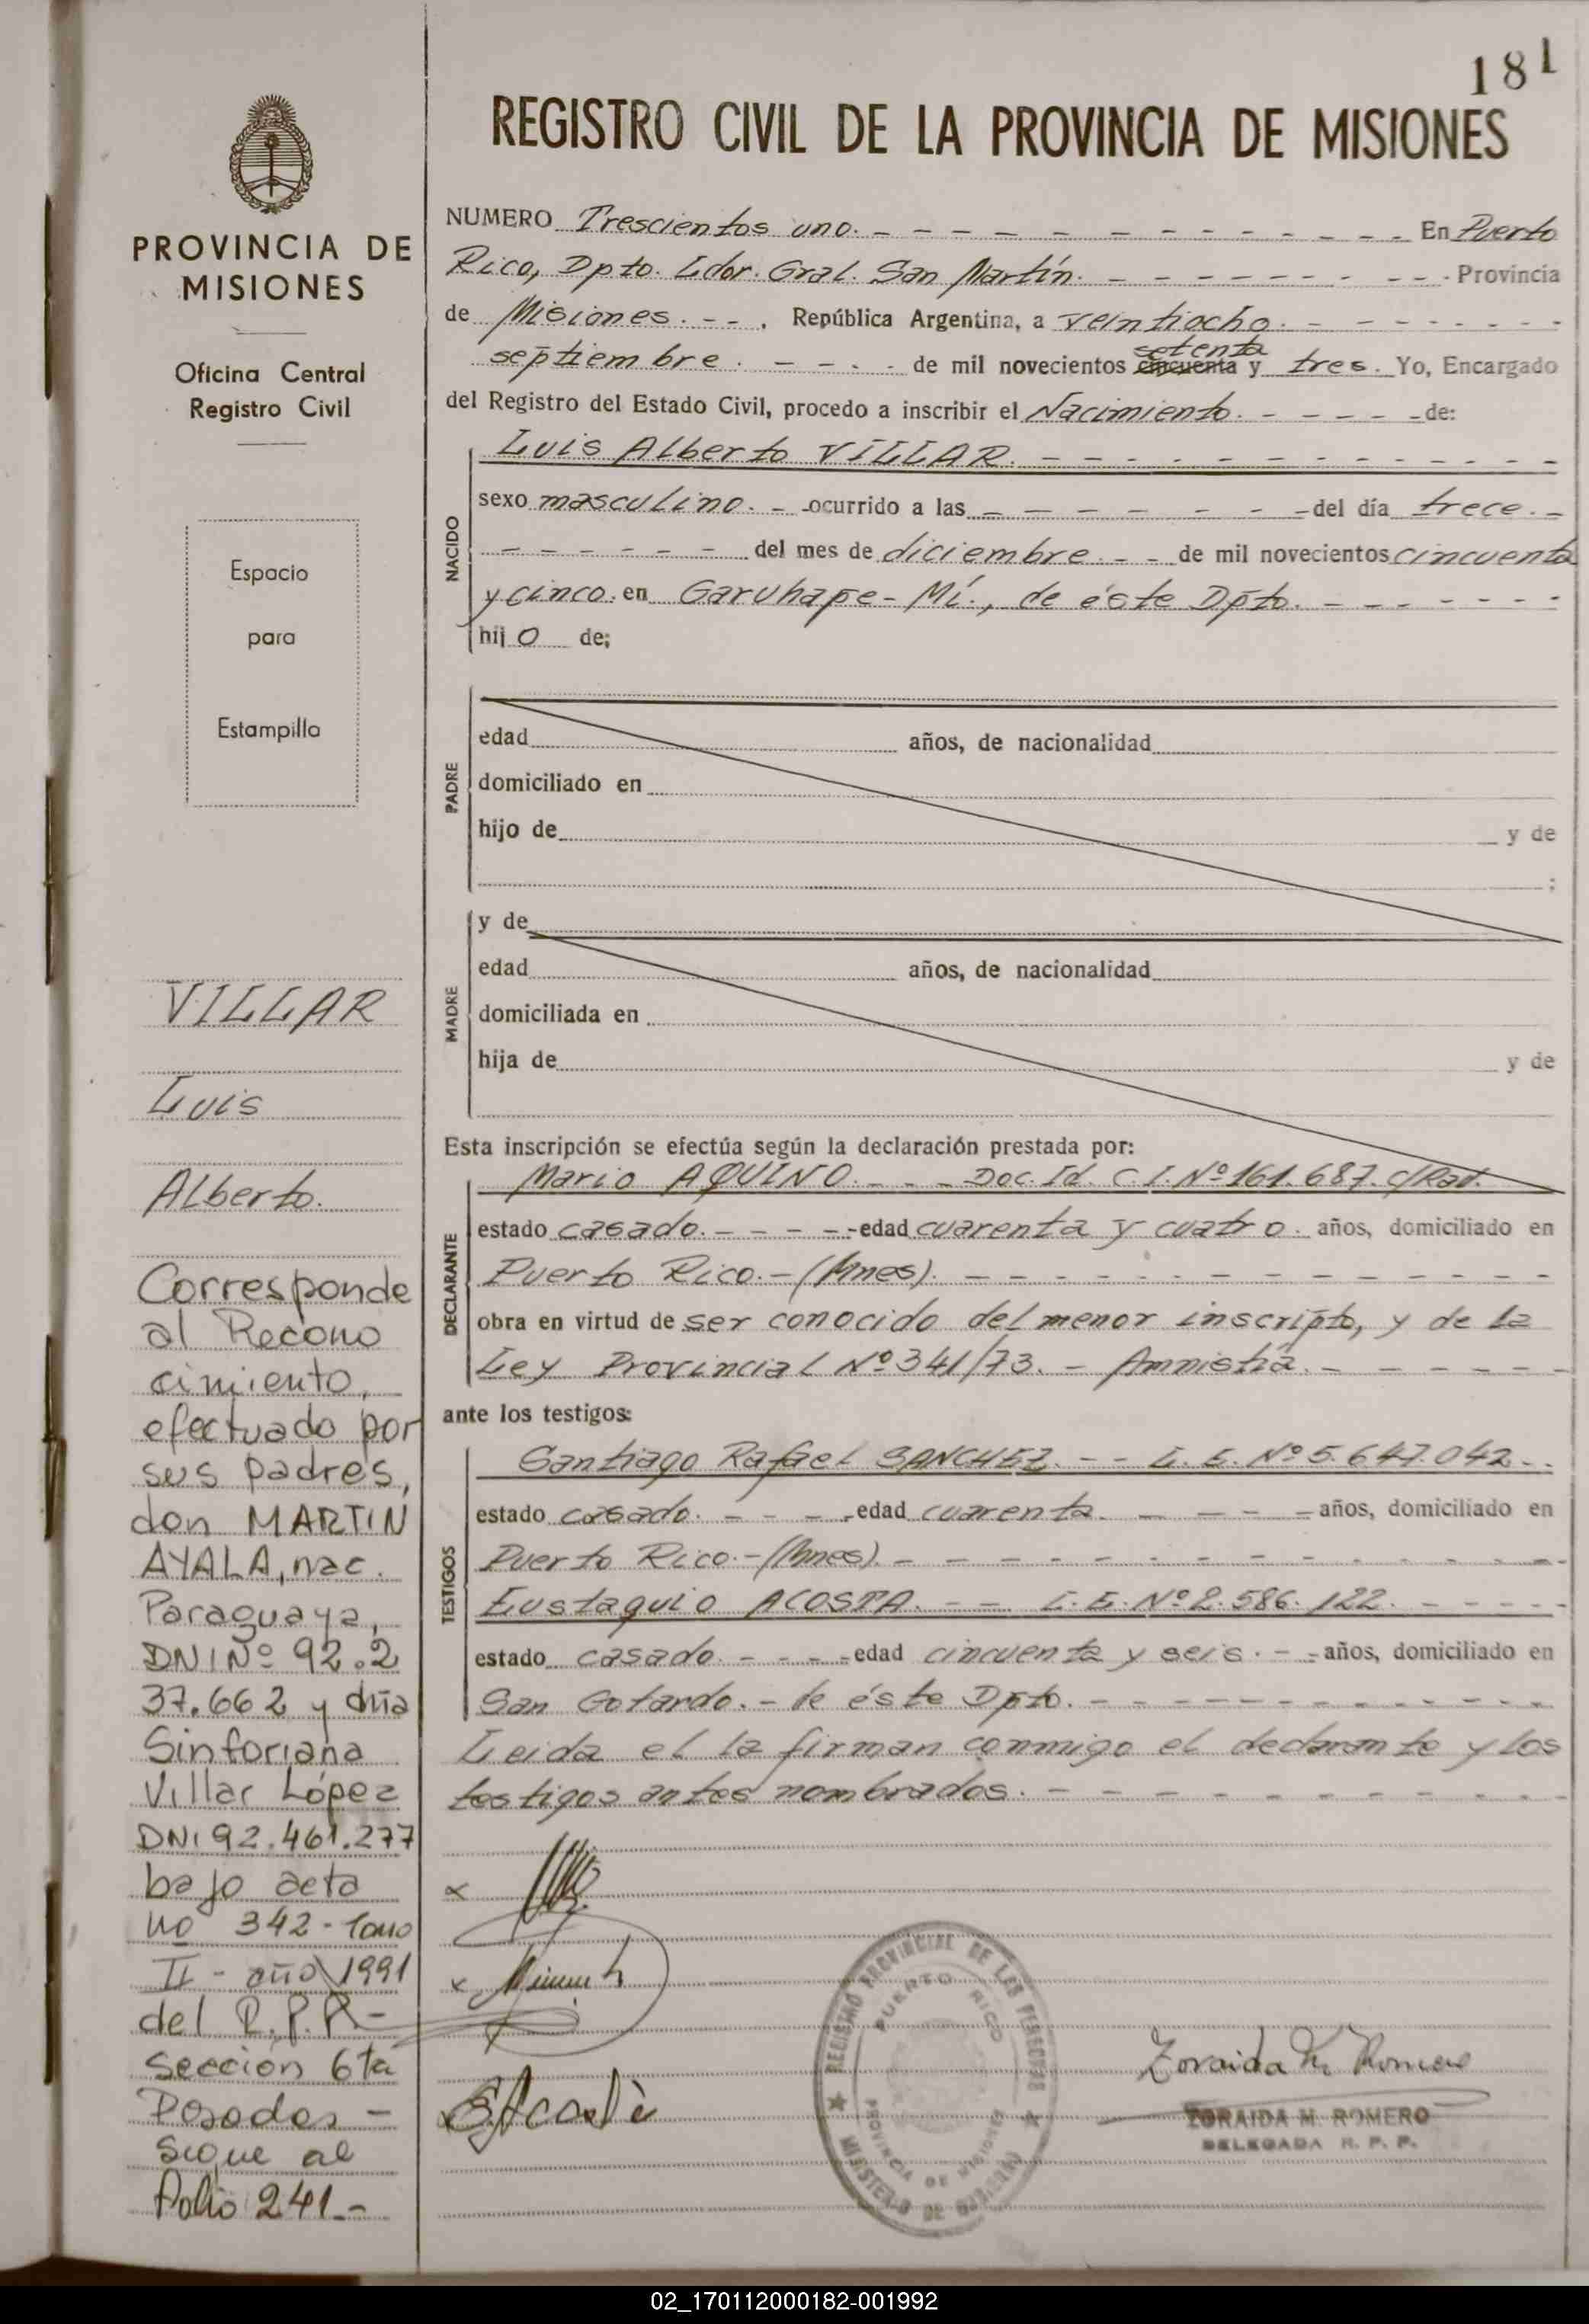 181
REGISTRO CIVIL DE LA PROVINCIA DE MISIONES
PROVINCIA DE
MISIONES
Oficina Central
Registro Civil
Espacio
para
Estampilla
VILLAR
Luis
Alberto.
Corresponde
al Recono
cimiento,
efectuado por
sus padres,
don MARTIN
AYALA, nac.
Paraguaya,
DNI Nº 92.2
37.662 y dña
Sinforiana
Villar López
DNI 92.461.277
bajo acta
nº 342 - Tomo
II - año 1991
del R.P.P. -
Sección 6ta
Posadas -
Sigue al
Folio 241. -
NUMERO Trescientos uno. - - - En Puerto
Rico, Dpto. Ldor. Gral. San Martín. - - - Provincia
de Misiones. - - , República Argentina, a veintiocho. - - -
setenta
septiembre. - - - de mil novecientos cincuenta y tres. Yo, Encargado
del Registro del Estado Civil, procedo a inscribir el Nacimiento. - - - de:
NACIDO
Luis Alberto VILLAR. - - -
sexo masculino. - ocurrido a las - - - del día trece. -
- - - del mes de diciembre. - - de mil novecientos cincuenta
y cinco. en Garuhape-Mí., de éste Dpto. - - -
hij o de;
PADRE
edad años, de nacionalidad
domiciliado en
hijo de y de
;
MADRE
y de
edad años, de nacionalidad
domiciliada en
hija de y de
Esta inscripción se efectúa según la declaración prestada por:
DECLARANTE
Mario AQUINO. - - - Doc. Id. C.I. Nº 161.687. c/Rad.
estado casado. - - - edad cuarenta y cuatro. años, domiciliado en
Puerto Rico. - (Mnes). - - -
obra en virtud de ser conocido del menor inscripto, y de la
Ley Provincial Nº 341/73. - Amnistía. - - -
ante los testigos:
TESTIGOS
Santiago Rafael SANCHEZ. - - L.E. Nº 5.647.042. -
estado casado. - - - edad cuarenta. - - - años, domiciliado en
Puerto Rico. - (Mnes). - - -
Eustaquio ACOSTA. - - L.E. Nº 2.586.122. - - -
estado casado. - - - edad cincuenta y seis. - - años, domiciliado en
San Gotardo. - de éste Dpto. - - -
Leida el la firman conmigo el declarante y los
testigos antes nombrados. - - -
REGISTRO PROVINCIAL DE LAS PERSONAS
PUERTO RICO
PROVINCIA DE MISIONES
MINISTERIO DE GOBIERNO
Zoraida M. Romero
ZORAIDA M. ROMERO
DELEGADA R. P. P.
02_170112000182-001992